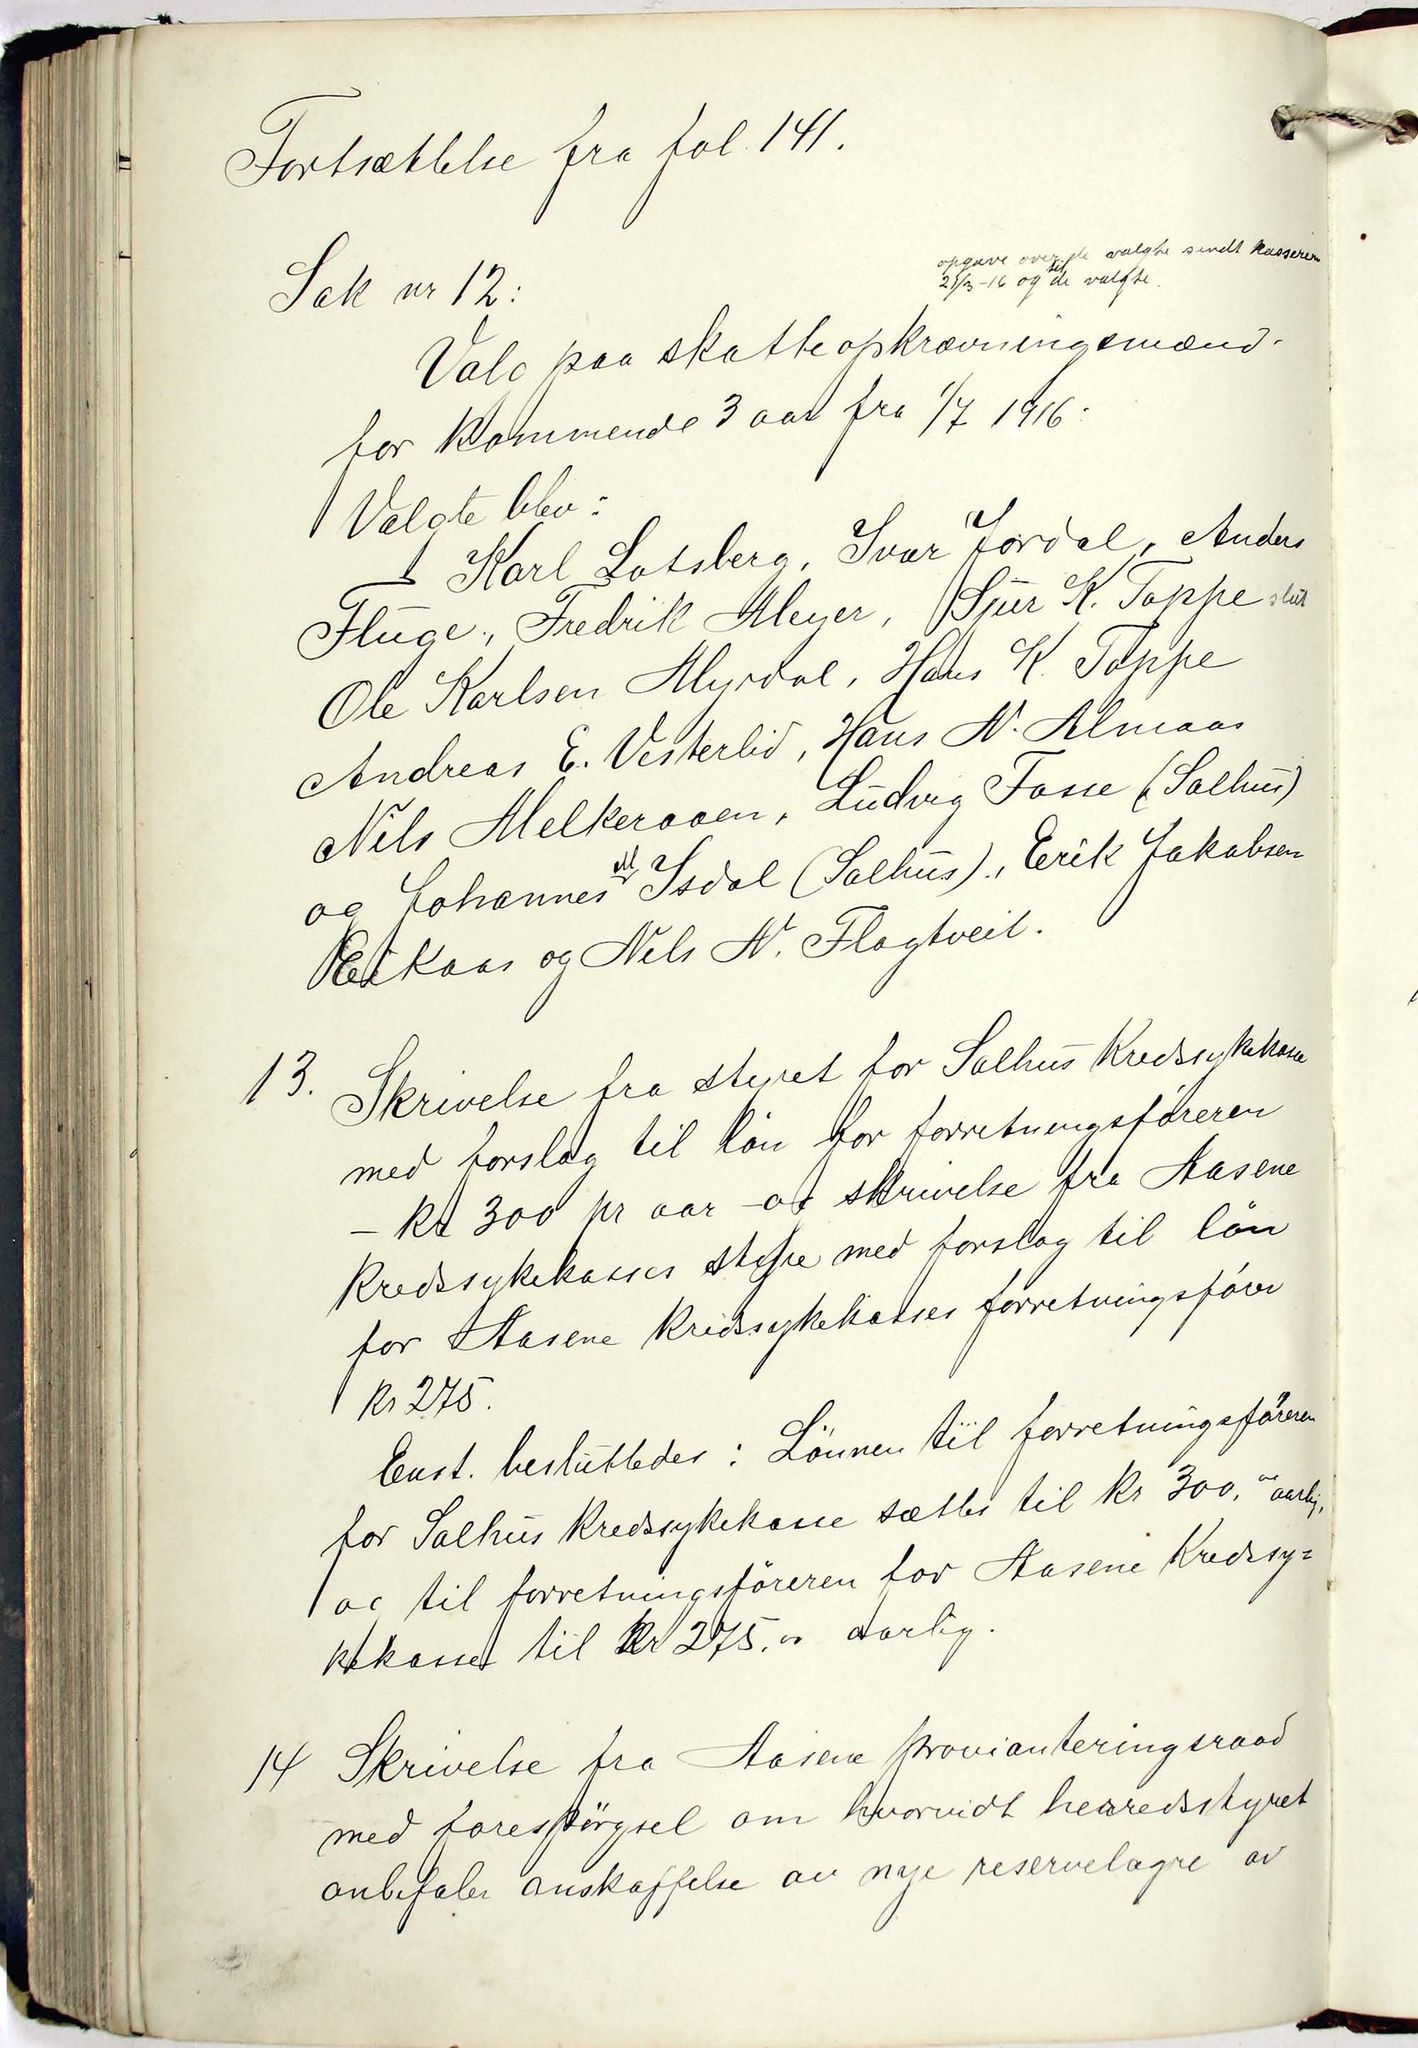 Fortsættelse fra fol. 141.
opgave over de valgte sendt kasseren
21/3-16 og til de valgte.
Sak nr 12:
Valg paa skatteopkrævningsmænd
for kommende 3 aar fra 1/7 1916:
Valgte blev:
Karl Lotsberg, Ivar Jordal, Anders
Fluge, Fredrik Meyer, Sjur K. Toppe slut
Ole Karlsen Myrdal, Hans K. Toppe
Andreas E. Vesterlid, Hans N. Almaas
Nils Melkeraaen, Ludvig Fosse (Salhus)
og Johannes M Isdal (Salhus), Erik Jakobsen
Eikaas og Nils N. Flagtveit.
13. Skrivelse fra styret for Salhus Kredssykekasse
med forslag til løn for forretningsföreren
- kr 300 pr aar - og skrivelse fra Aasene
kredssykekasses styre med forslag til lön
for Aasene kredssykekasses forretningsfører
kr 275.
Enst. besluttedes: Lönnen til forretningsföreren
for Salhus kredssykekasse sættes til kr 300,00 aarlig,
og til forretningsföreren for Aasene Kredssy=
kekasse til kr 275,00 aarlig.
14 Skrivelse fra Aasene provianteringsraad
med forespörgsel om hvorvidt herredsstyret
anbefaler anskaffelse av nye reservelagre av